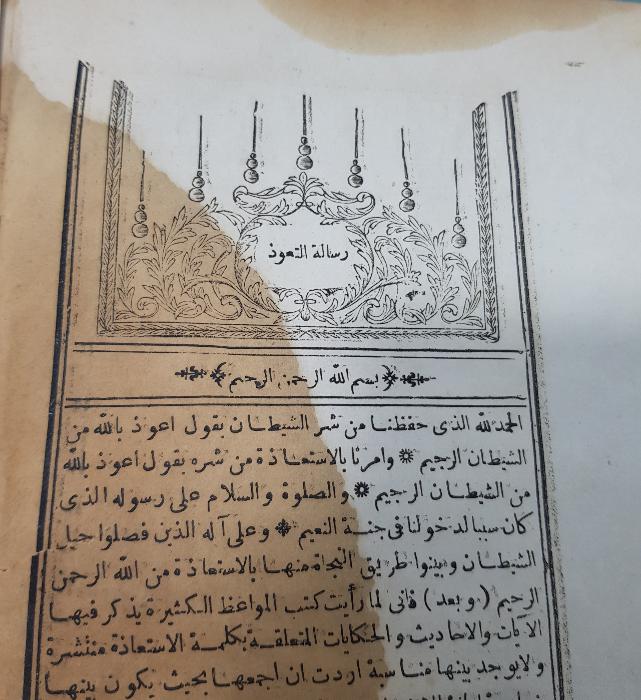 رسالة التعوذ
بسم الله الرحمن الرحيم
الحمد لله الذى حفظنا من شر الشيطان بقول اعوذ بالله من
الشيطان الرجيم * وامرنا بالاستعاذة من شره بقول اعوذ بالله
من الشيطان الرجيم * والصلوة والسلام على رسوله الذى
كان سببا لدخولنا فى جنة النعيم * وعلى آله الذين فصلوا حيل
الشيطان وبينوا طريق النجاة منها بالاستعاذة من الله الرحمن
الرحيم (وبعد) فانى لما رأيت كتب المواعظ الكثيرة يذكر فيها
الآيات والاحاديث والحكايات المتعلقة بكلمة الاستعاذة منتشرة
ولايوجد بينها مناسبة اردت ان اجمعها بحيث يكون بينها